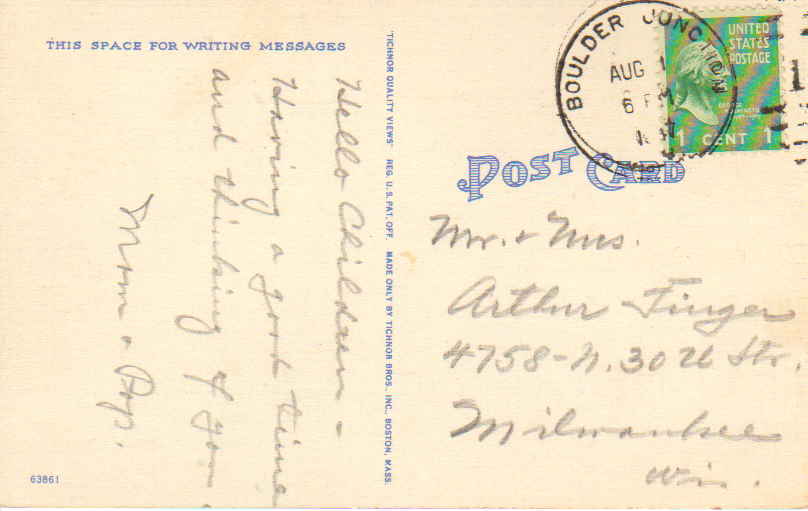 THIS SPACE FOR WRITING MESSAGES
Hello Children -
Having a good time
and thinking of you.
Mom & Pop.
63861
"TICHNOR QUALITY VIEWS" REG. U. S. PAT. OFF. MADE ONLY BY TICHNOR BROS., INC., BOSTON, MASS.
BOULDER JUNCTION
AUG 1
6 PM
UNITED
STATES
POSTAGE
1 CENT 1
POST CARD
Mr. & Mrs.
Arthur Finger
4758-N. 30th Str.
Milwaukee
Wis.